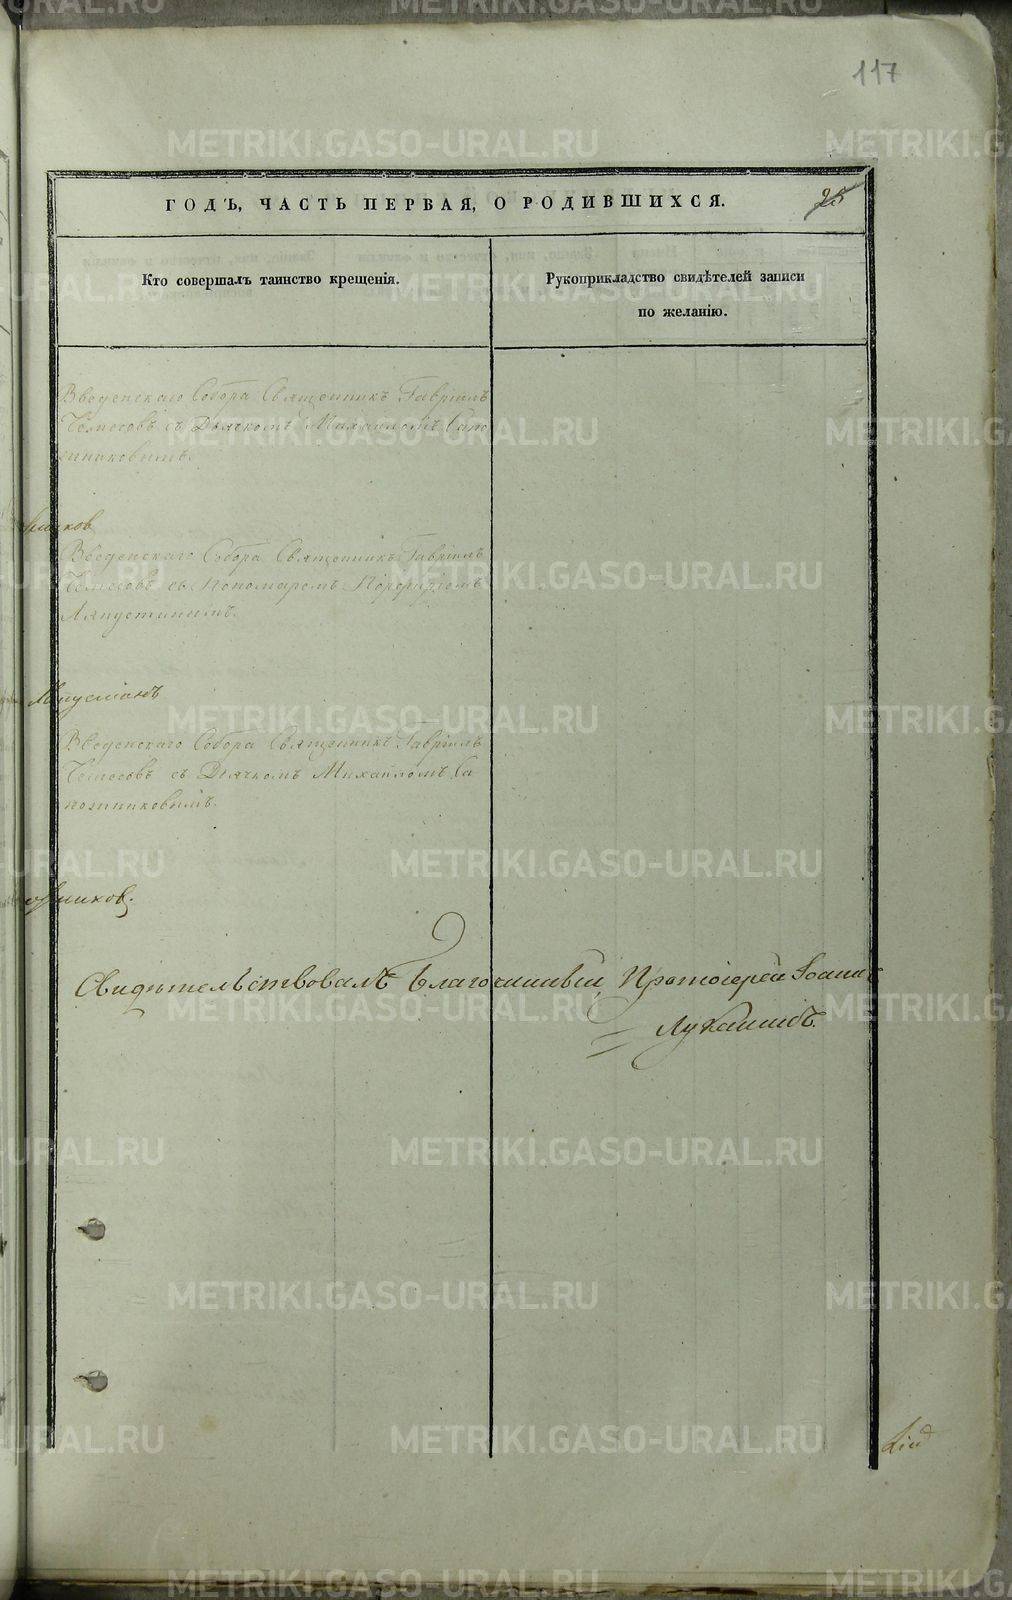 117
ГОДЪ, ЧАСТЬ ПЕРВАЯ, О РОДИВШИХСЯ.
25
Кто совершалъ таинство крещенія.
Рукоприкладство свидѣтелей записи
по желанію.
Введенскаго Собора Священникъ Гавріилъ
съ Дьячкомъ Михаиломъ Сапо
жниковымъ.
Введенскаго Собора Священникъ Гавріилъ
съ Пономаремъ Порфиріемъ
Ляпустинымъ.
Введенскаго Собора Священникъ Гавріилъ
съ Дьячкомъ Михаиломъ Са
пожниковымъ.
Свидѣтельствовалъ Благочинный Протоіерей Іоаннъ
Луканинъ.
METRIKI.GASO-URAL.RU